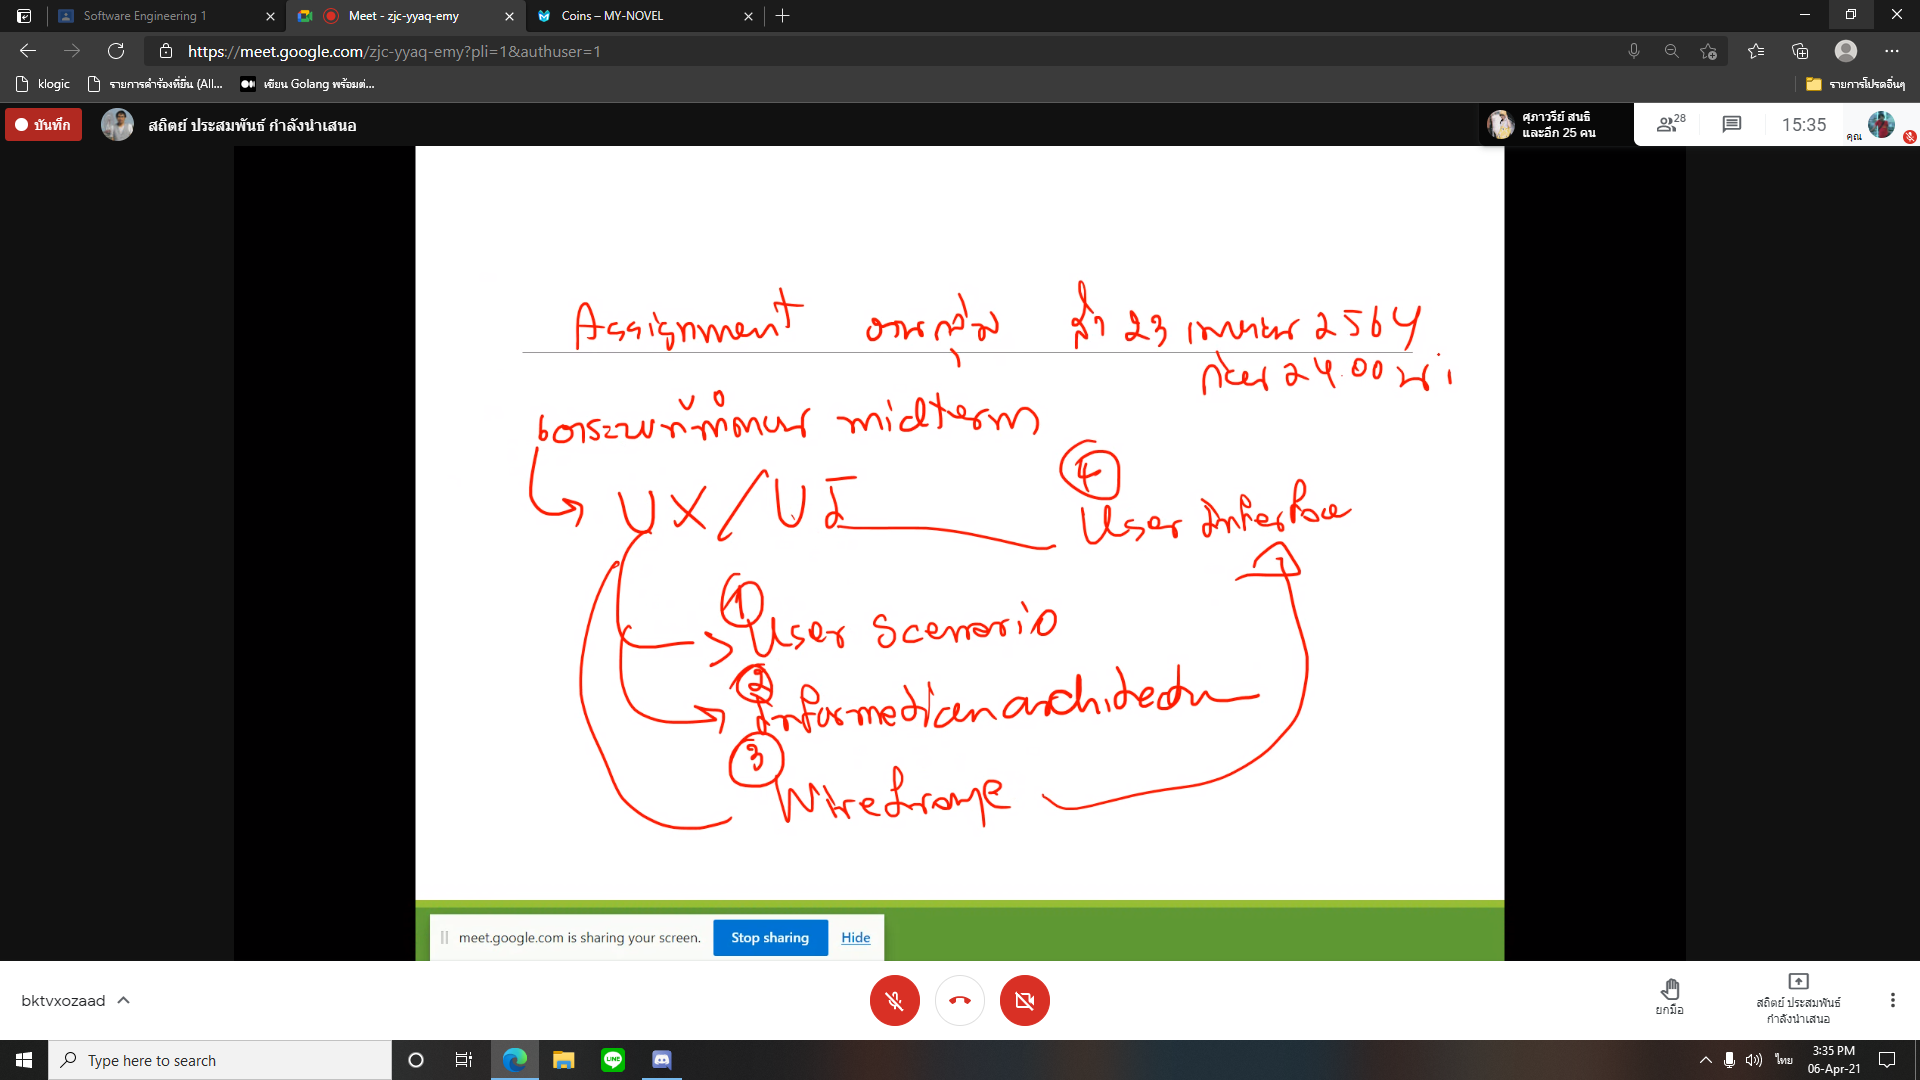 Software Engineering 1
Meet - zjc-yyaq-emy
Coins – MY-NOVEL
https://meet.google.com/zjc-yyaq-emy?pli=1&authuser=1
klogic
รายการคำร้องที่ยื่น (All...
เขียน Golang พร้อมต่...
รายการโปรดอื่นๆ
บันทึก
สถิตย์ ประสมพันธ์ กำลังนำเสนอ
ศุภาวรีย์ สนธิ
และอีก 25 คน
28
15:35
คุณ
Assignment งานกลุ่ม ส่ง 23 เมษายน 2564
ก่อน 24.00 น.
เอาระบบที่ทำตอน midterm
UX/UI
4
User Interface
1
User Scenario
2
Information architectu
3
Wireframe
meet.google.com is sharing your screen.
Stop sharing
Hide
bktvxozaad
ยกมือ
สถิตย์ ประสมพันธ์
กำลังนำเสนอ
Type here to search
LINE
ไทย
3:35 PM
06-Apr-21